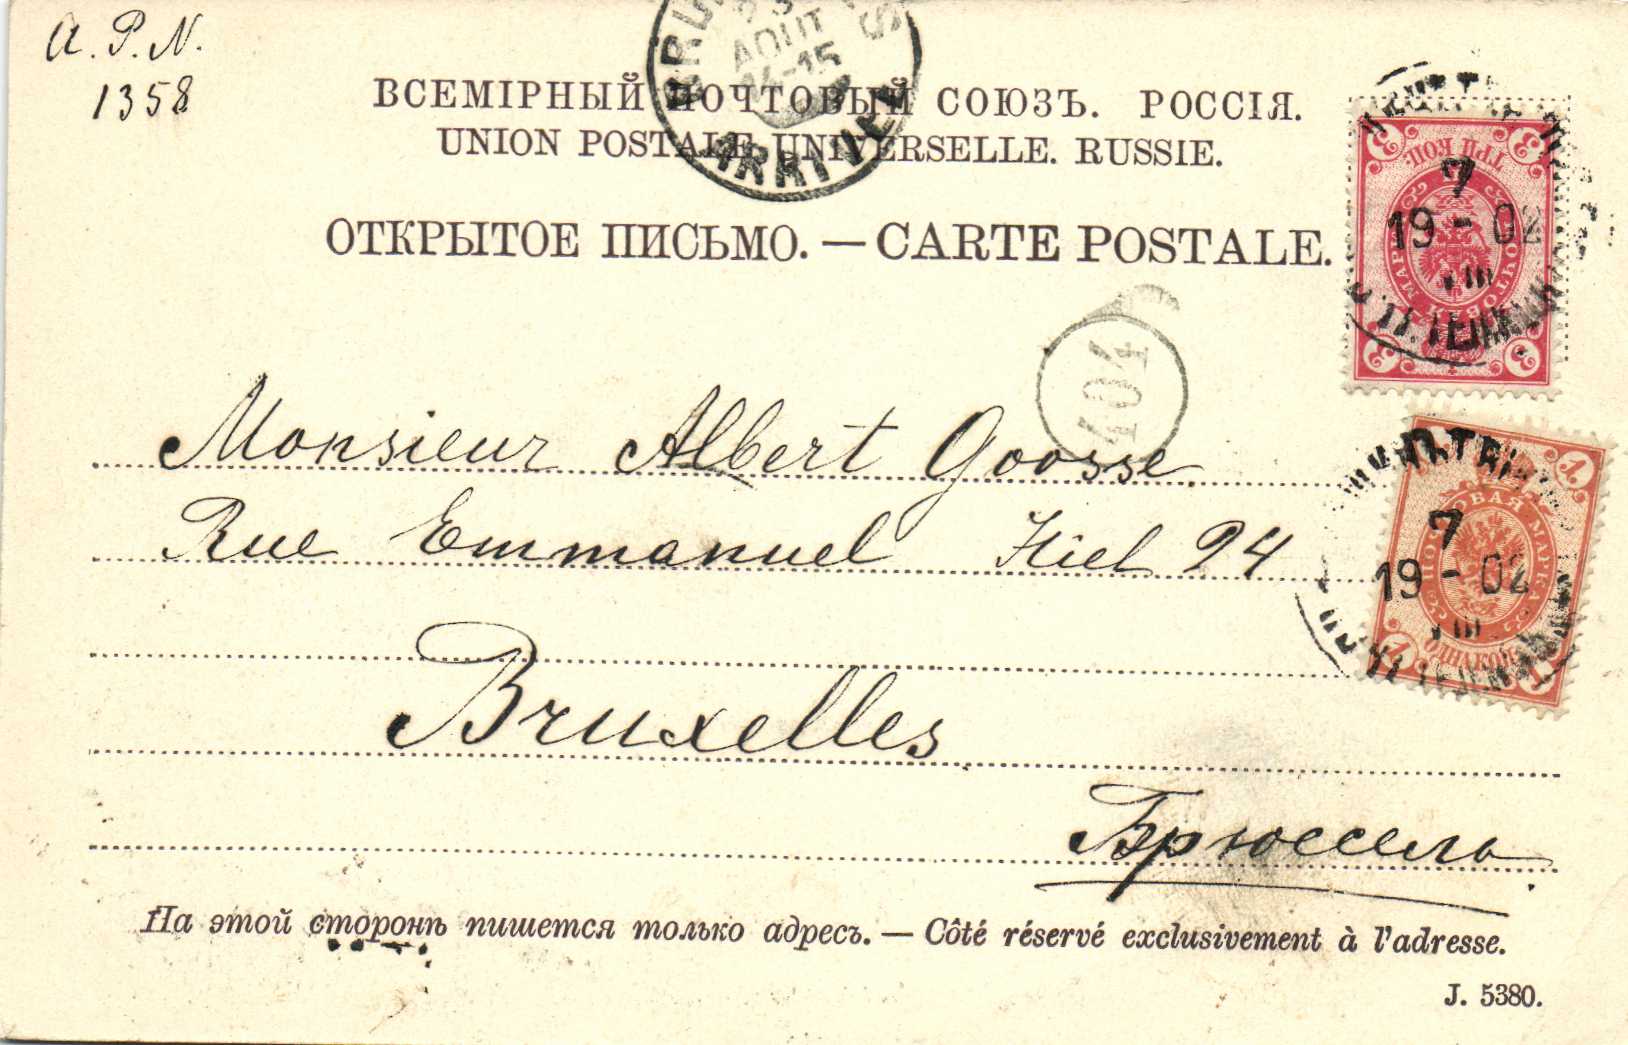 A. P. N.
1358
AOUT
14-15
ARRIVEE
ВСЕМІРНЫЙ ПОЧТОВЫЙ СОЮЗЪ. РОССІЯ.
UNION POSTALE UNIVERSELLE. RUSSIE.
ОТКРЫТОЕ ПИСЬМО. — CARTE POSTALE.
3 3
ТРИ КОП.
ПОЧТОВАЯ МАРКА
3 3
7
19 - 02
VIII
404
Monsieur Albert Goosse
Rue Emmanuel Hiel 94
Bruxelles
Брюссель
1
ПОЧТОВАЯ МАРКА
7
19 - 02
VIII
ОДНА КОП.
1 1
На этой сторонѣ пишется только адресъ. — Côté réservé exclusivement à l'adresse.
J. 5380.